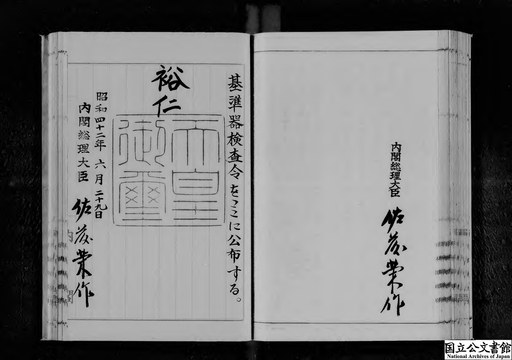 内閣総理大臣
佐藤栄作
基準器検査令をここに公布する。
裕仁
天皇
御璽
昭和四十二年六月二十九日
内閣総理大臣
佐藤栄作
内閣
国立公文書館
National Archives of Japan